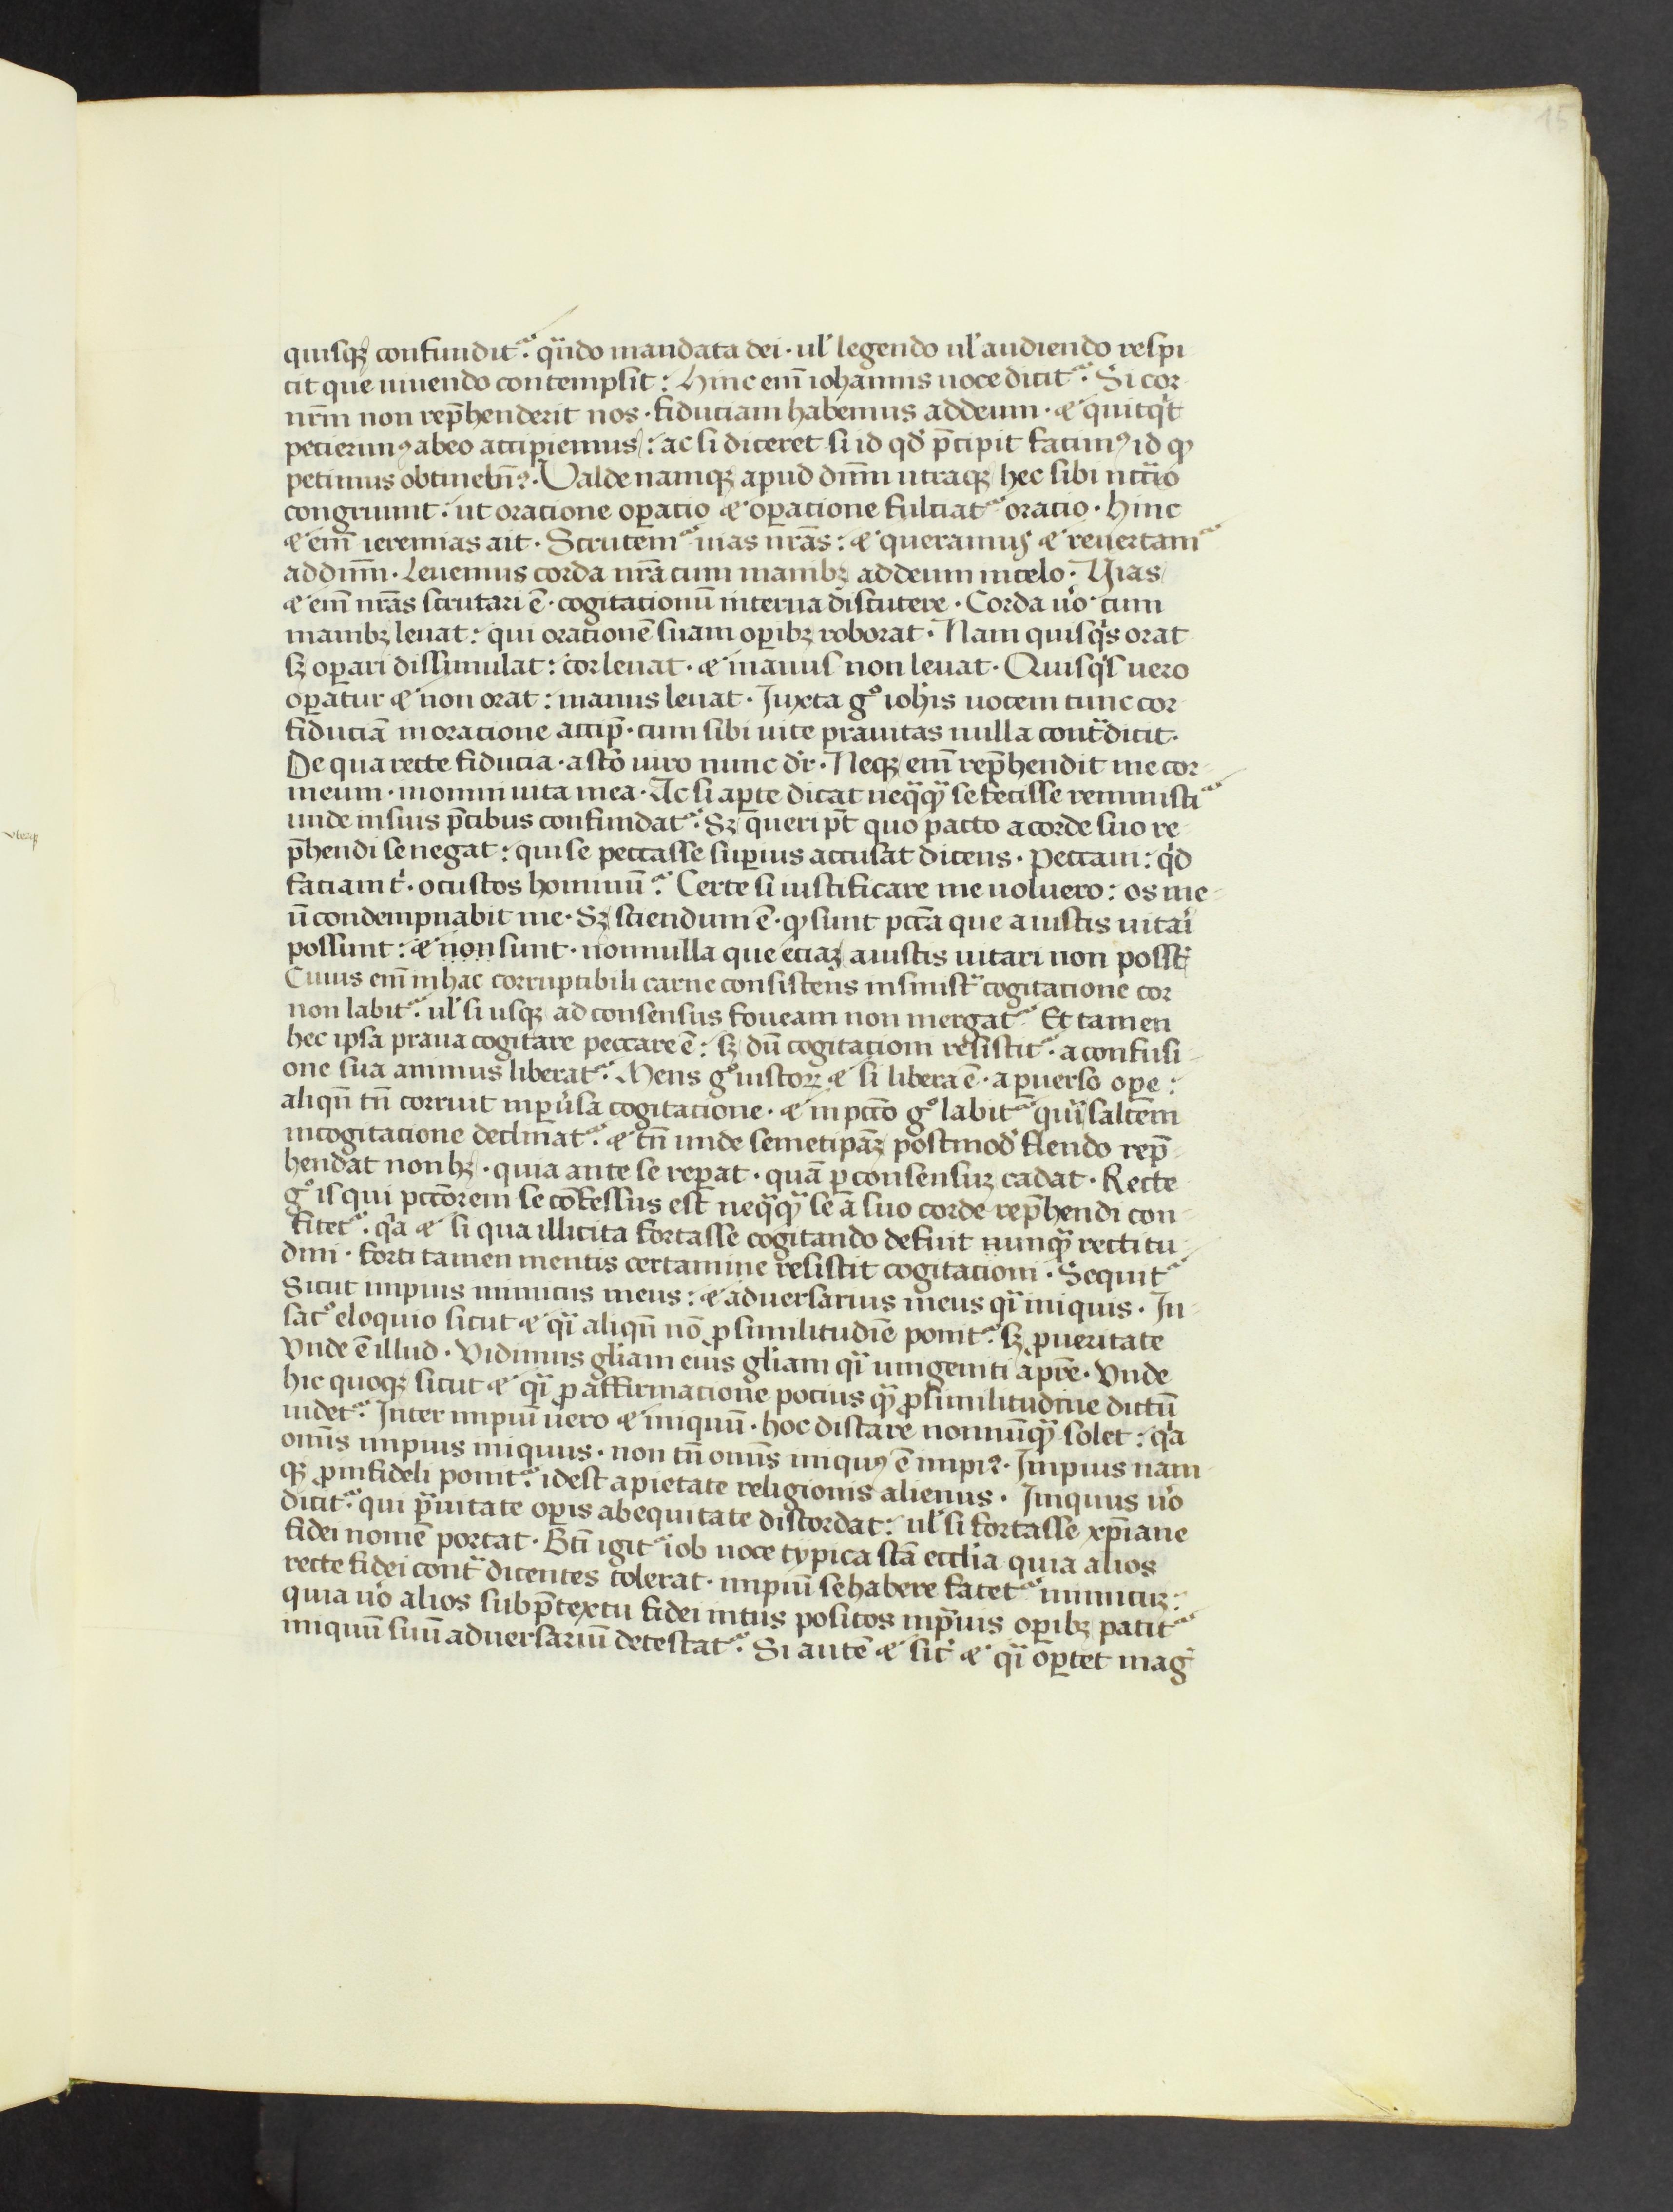 15
quisqꝫ confundit᷑. qͣndo mandata dei · ul̕ legendo ul̕ audiendo respi
cit que uiuendo contempsit : Hinc eni̅ iohannis uoce dicit᷑. Si cor
nr̅m non rep̅henderit nos · fiduciam habemus addeum · & quitqͥt
petierimꝰ abeo accipiemus : ac si diceret si id qd̕ p̅cipit facimꝰ id qꝫ
petimus obtinebim̅ꝰ. Valde namqꝫ apud dn̅m utraqꝫ hec sibi nccͥio
congruunt : ut oracione oꝑacio & oꝑacione fulciat᷑ oracio · Hinc
& eni̅ ieremias ait · Scrutem᷑ uias nr̅as : & queramus & reuertam᷑
addn̅m · Leuemus corda nr̅a cum manibꝫ addeum incelo · Vias
& eni̅ nr̅as scrutari e̅ · cogitacionu̅ interna discutere · Corda uͦo cum
manibꝫ leuat : qui oracione̅ suam oꝑibꝫ roborat · Nam quisqͥs orat
sꝫ oꝑari dissimulat : cor leuat · & manus non leuat · Quisqͥs uero
oꝑatur & non orat : manus leuat · Juxta gͦ ioh̕is uocem tunc cor
fiducia̅ inoracione accip̅ · cum sibi uite prauitas nulla contᷓdicit·
De qua recte fiducia · a sc̅o uiro nunc dr̅ · Neqꝫ eni̅ rep̅hendit me cor
meum · inomni uita mea · Ac si aꝑte dicat neqͣqͣ se fecisse reminisci᷑
unde insuis p̅cibus confundat᷑. Sꝫ queri pt̅ quo pacto acorde suo re
p̅hendi se negat : qui se peccasse suꝑius accusat dicens · Peccaui : qͥd
faciam tͥ · ocustos hominu̅.᷑ Certe si iustificare me uoluero : os me
u̅ condempnabit me · Sꝫ sciendum e̅ · qꝫ sunt pcc̅a que a iustis uitari
possunt : & non sunt · nonnulla que eciaꝫ aiustis uitari non poss̅t
Cuius eni̅ inhac corruptibili carne consistens insinistᷓ cogitacione cor
non labit᷑. ul̕ si usqꝫ ad consensus foueam non mergat᷑ Et tamen
hec ipsa praua cogitare peccare e̅ : sꝫ du̅ cogitacioni resistit᷑ · a confusi
one sua animus liberat᷑. Mens gͦ iustoꝝ & si libera e̅ · a ꝑuerso oꝑe :
aliqn̅ tn̅ corruit inꝑuͥsa cogitacione · & in pcc̅o gͦ labit᷑ quͥ saltem
incogitacione declinat᷑. & tn̅ unde semetipsaꝫ postmod̕ flendo rep̅
hendat non hꝫ · quia ante se reꝑat · qua̅ ꝑ consensuꝫ cadat · Recte
gͦ is qui pcc̅orem se co̅fessus est neqͣqͣ se a̅ suo corde rep̅hendi con
fitet᷑. qͥa & si qua illicita fortasse cogitando defuit nunqͣ rectitu
dini · forti tamen mentis certamine resistit cogitacioni · Sequit᷑
Sicut impius inimicus meus : & aduersarius meus qͣi iniquis · In
sacͦ eloquio sicut & qͣi aliqn̅ no̅ ꝓ similitudi̅e ponit᷑. sꝫ ꝓueritate
Vnde e̅ illud · Vidimus gl̕iam eius gl̕iam qͣi unigeniti apr̅e · Vnde
hic quoqꝫ sicut & qͣi ꝓ affirmacione pocius qͣ ꝓ similitudine dictu̅
uidet᷑. Inter impiu̅ uero & iniquu̅ · hoc distare nonnu̅qͣ solet : qͥa
omi̅s impius iniquus · non tn̅ omi̅s iniquꝰ e̅ impiꝰ · Impius nam
qꝫ ꝓinfideli ponit᷑. idest a pietate religionis alienus · Iniquus uͦo
dicit᷑. qui pͣuitate oꝑis abequitate discordat : ul̕ si fortasse xp̅iane
fidei nome̅ portat · Bt̅i igit᷑ iob uoce typica sc̅a eccl̕ia quia alios
recte fidei contᷓ dicentes tolerat · impiu̅ sehabere fatet᷑ inimicuꝫ :
quia uͦo alios sub p̅textu fidei intus positos inpͣuis oꝑibꝫ patit᷑
iniquu̅ suu̅ aduersariu̅ detestat᷑. Si aute̅ & sic̕ & qͣi oꝑtet mag̕